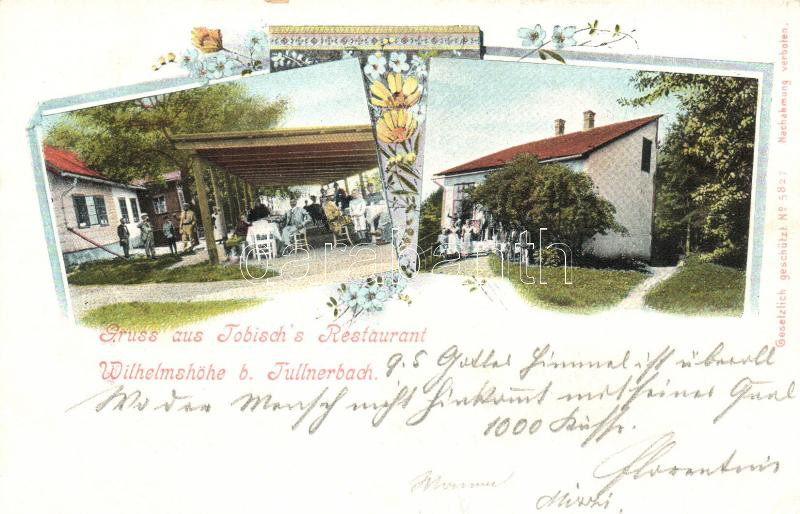 Gruss aus Tobisch's Restaurant
Wilhelmshöhe b. Tullnerbach.
9.5 Gottes Himmel ist überall
Wo der Mensch nicht hinkommt mit seiner Qual
1000 Küsse.
Florentine
Mizzi.
Gesetzlich geschützt No 5827 Nachahmung verboten.
darabanth